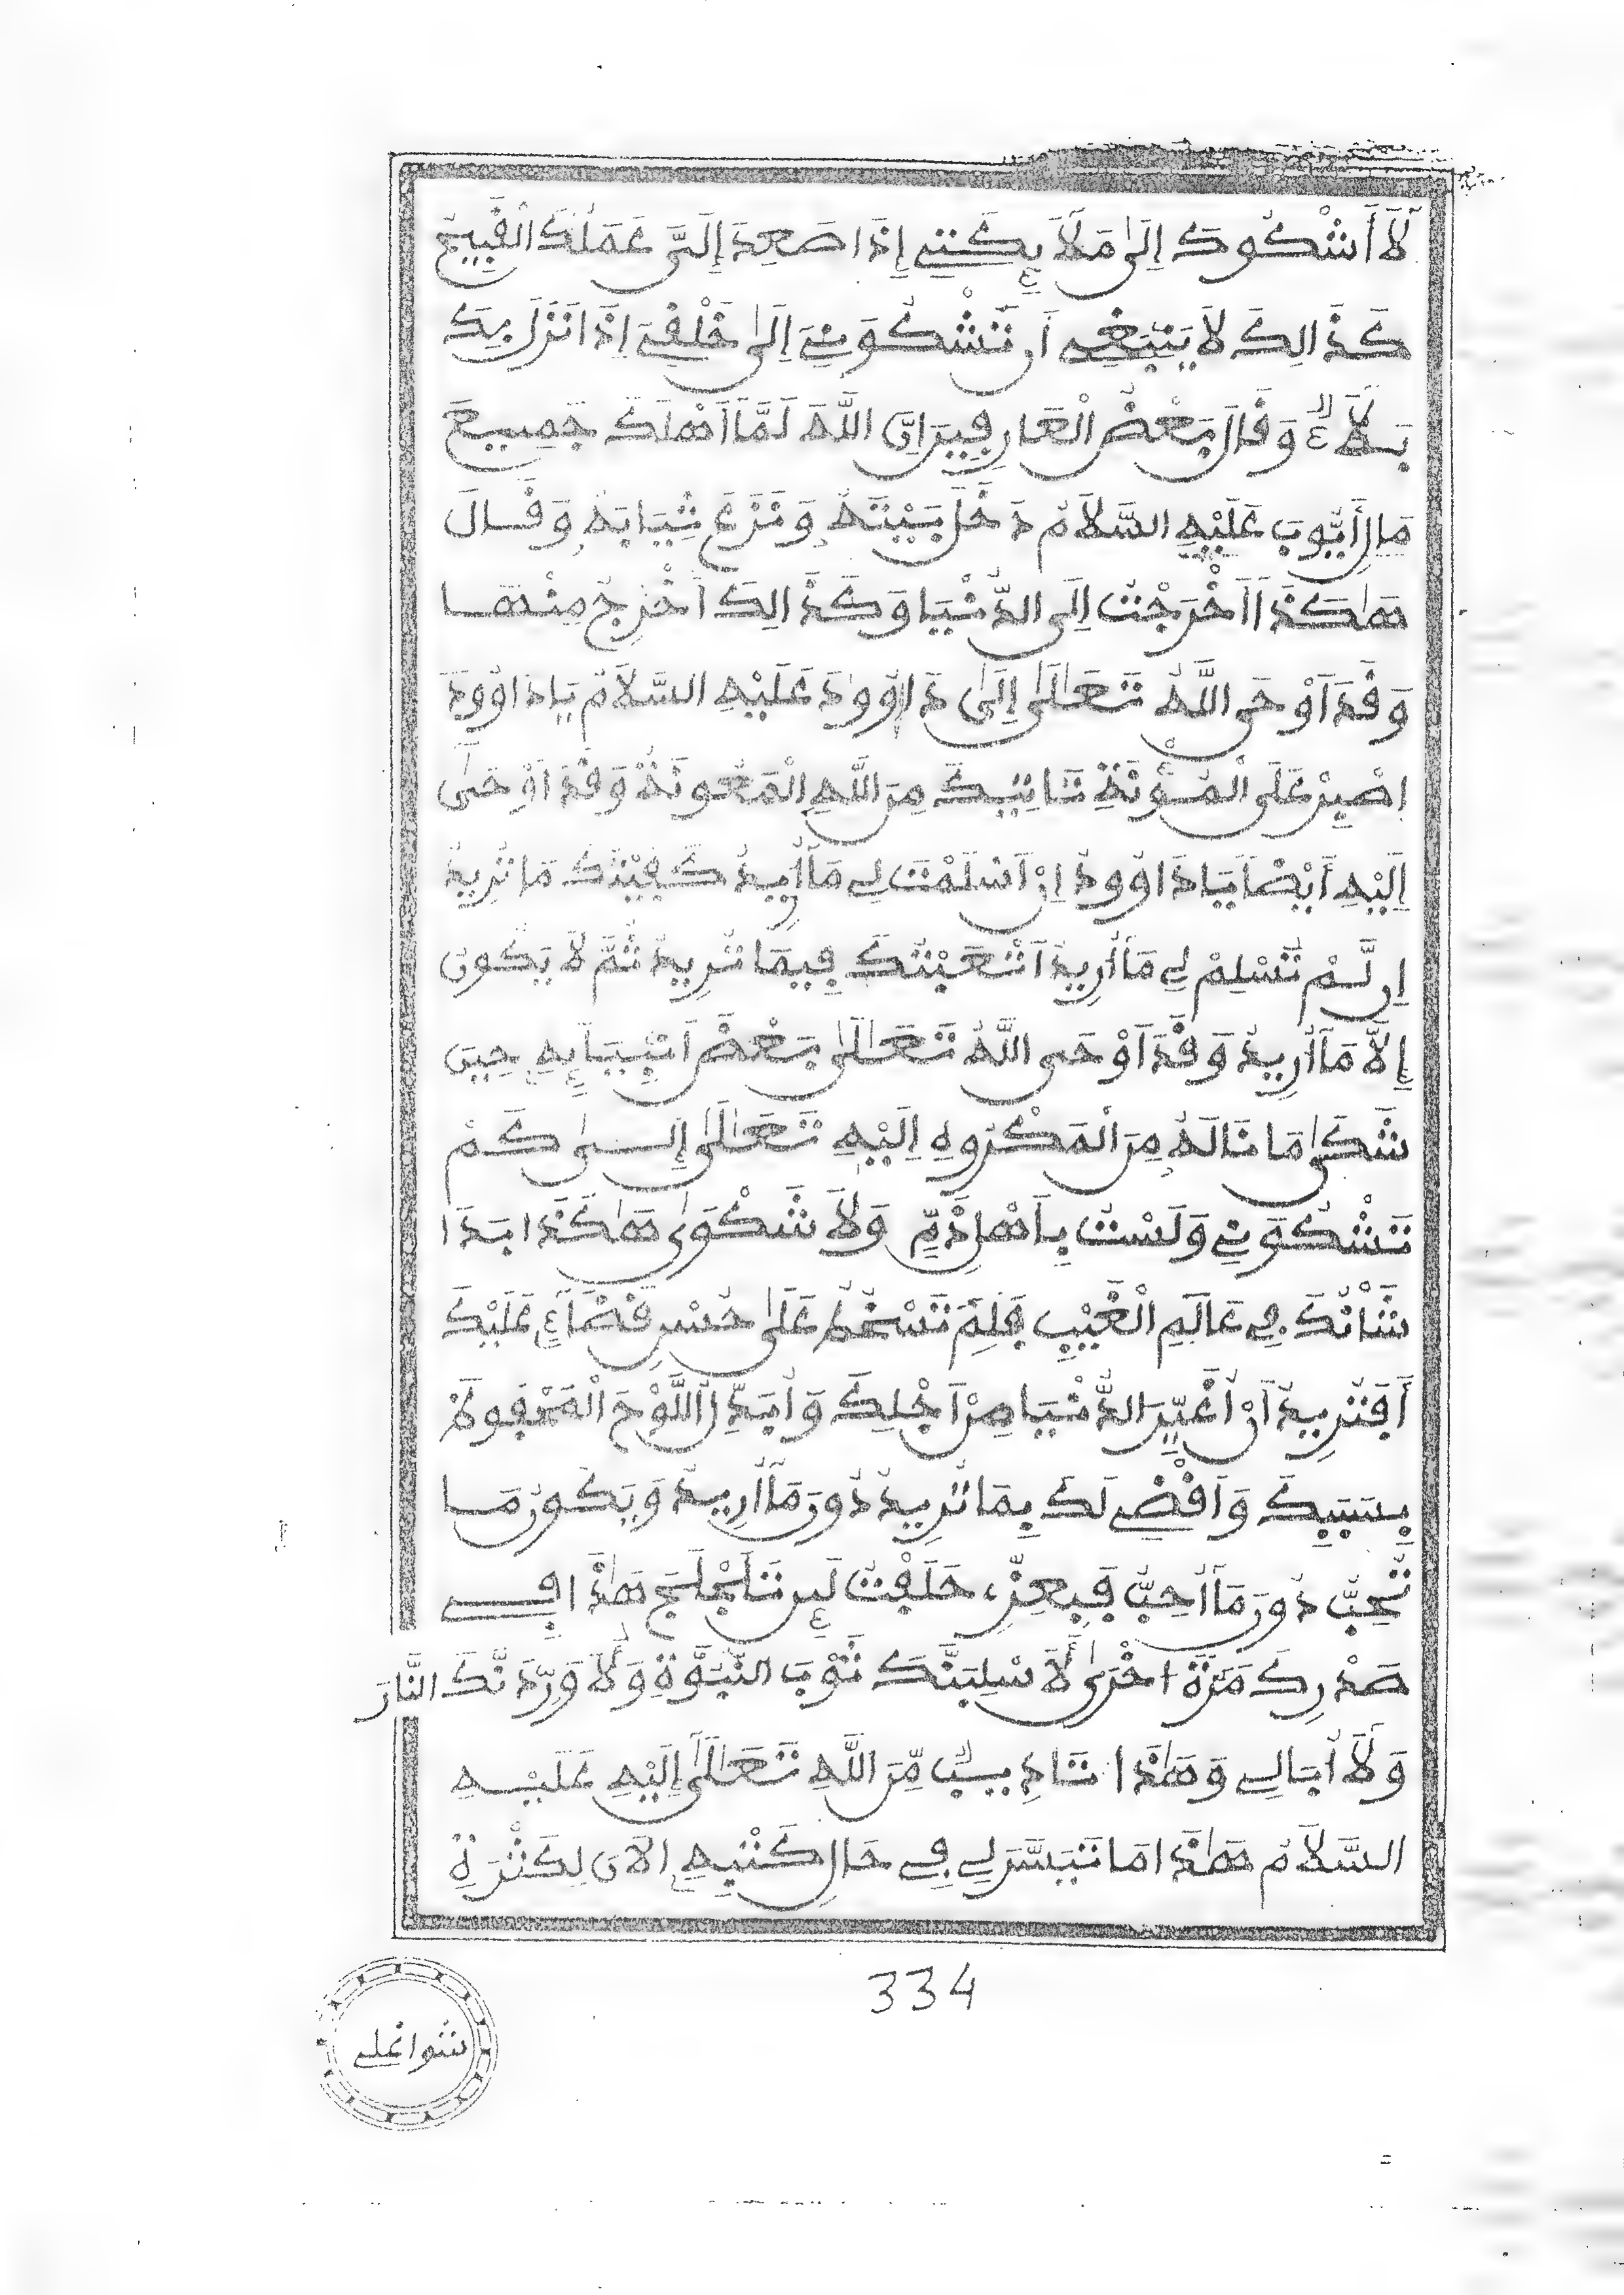 لَآ أَشْكُوكَ إِلَىٰ مَلَآئِكَتِي إِذَا صَعِدَ إِلَيَّ عَمَلُكَ الْقَبِيحُ
كَذَالِكَ لَا يَنْبَغِي أَن تَشْكُوَنِيَ إِلَىٰ خَلْقِيَ إِذَا نَزَلَ بِكَ
بَلَآءٌ وَقَالَ بَعْضُ الْعَارِفِينَ إِنَّ اللَّهَ لَمَّآ أَهْلَكَ جَمِيعَ
مَالِ أَيُّوبَ عَلَيْهِ السَّلَامُ دَخَلَ بَيْتَهُ وَنَزَعَ ثِيَابَهُ وَقَالَ
هَٰكَذَا أُخْرِجْتُ إِلَى الدُّنْيَا وَكَذَالِكَ أَخْرُجُ مِنْهَا
وَقَدَ أَوْحَى اللَّهُ تَعَٰلَىٰ إِلَىٰ دَاوُودَ عَلَيْهِ السَّلَامُ يَادَاوُودُ
اِصْبِرْ عَلَى الْمُؤْنَةِ تَاتِيكَ مِنَ اللَّهِ الْمَعُونَةُ وَقَدَ أَوْحَىٰ
إِلَيْهِ أَيْضًا يَادَاوُودُ إِنْ أَسْلَمْتَ لِي مَآ أُرِيدُ كَفَيْتُكَ مَا تُرِيدُ
إِن لَّمْ تُسْلِمْ لِي مَآ أُرِيدُ أَتْعَبْتُكَ فِيمَا تُرِيدُ ثُمَّ لَا يَكُونُ
إِلَّا مَآ أُرِيدُ وَقَدَ أَوْحَى اللَّهُ تَعَٰلَىٰ بَعْضَ أَنْبِيَآئِهِ حِينَ
شَكَىٰ مَا نَالَهُ مِنَ الْمَكْرُوهِ إِلَيْهِ تَعَٰلَىٰ إِلَىٰ كَمْ
تَشْكُوَنِي وَلَسْتُ بِأَهْلِ ذَمٍّ وَلَا شَكْوَىٰ هَٰكَذَا بَدَا
شَأْنُكَ فِي عَالَمِ الْغَيْبِ فَلِمَ تَسْخَطُ عَلَىٰ حُسْنِ قَضَآءِي عَلَيْكَ
أَفَتُرِيدُ أَنْ أُغَيِّرَ الدُّنْيَا مِنْ أَجْلِكَ وَأُبَدِّلَ اللَّوْحَ الْمَحْفُوظَ
بِسَبَبِكَ وَأَقْضِي لَكَ بِمَا تُرِيدُ دُونَ مَآ أُرِيدُ وَيَكُونُ مَا
تُحِبُّ دُونَ مَآ أُحِبُّ فَبِعِزِّي حَلَفْتُ لَئِن تَلَجْلَجَ هَٰذَا فِي
صَدْرِكَ مَرَّةً أُخْرَىٰ لَأَسْلُبَنَّكَ ثَوْبَ النُّبُوَّةِ وَلَأُورِدَنَّكَ النَّارَ
وَلَآ أُبَالِي وَهَٰذَا تَادِيبٌ مِّنَ اللَّهِ تَعَٰلَىٰ إِلَيْهِ عَلَيْهِ
السَّلَامُ هَٰذَا مَا تَيَسَّرَ لِي فِي حَالِ كَتْبِهِ الْآنَ لِكَثْرَةِ
334